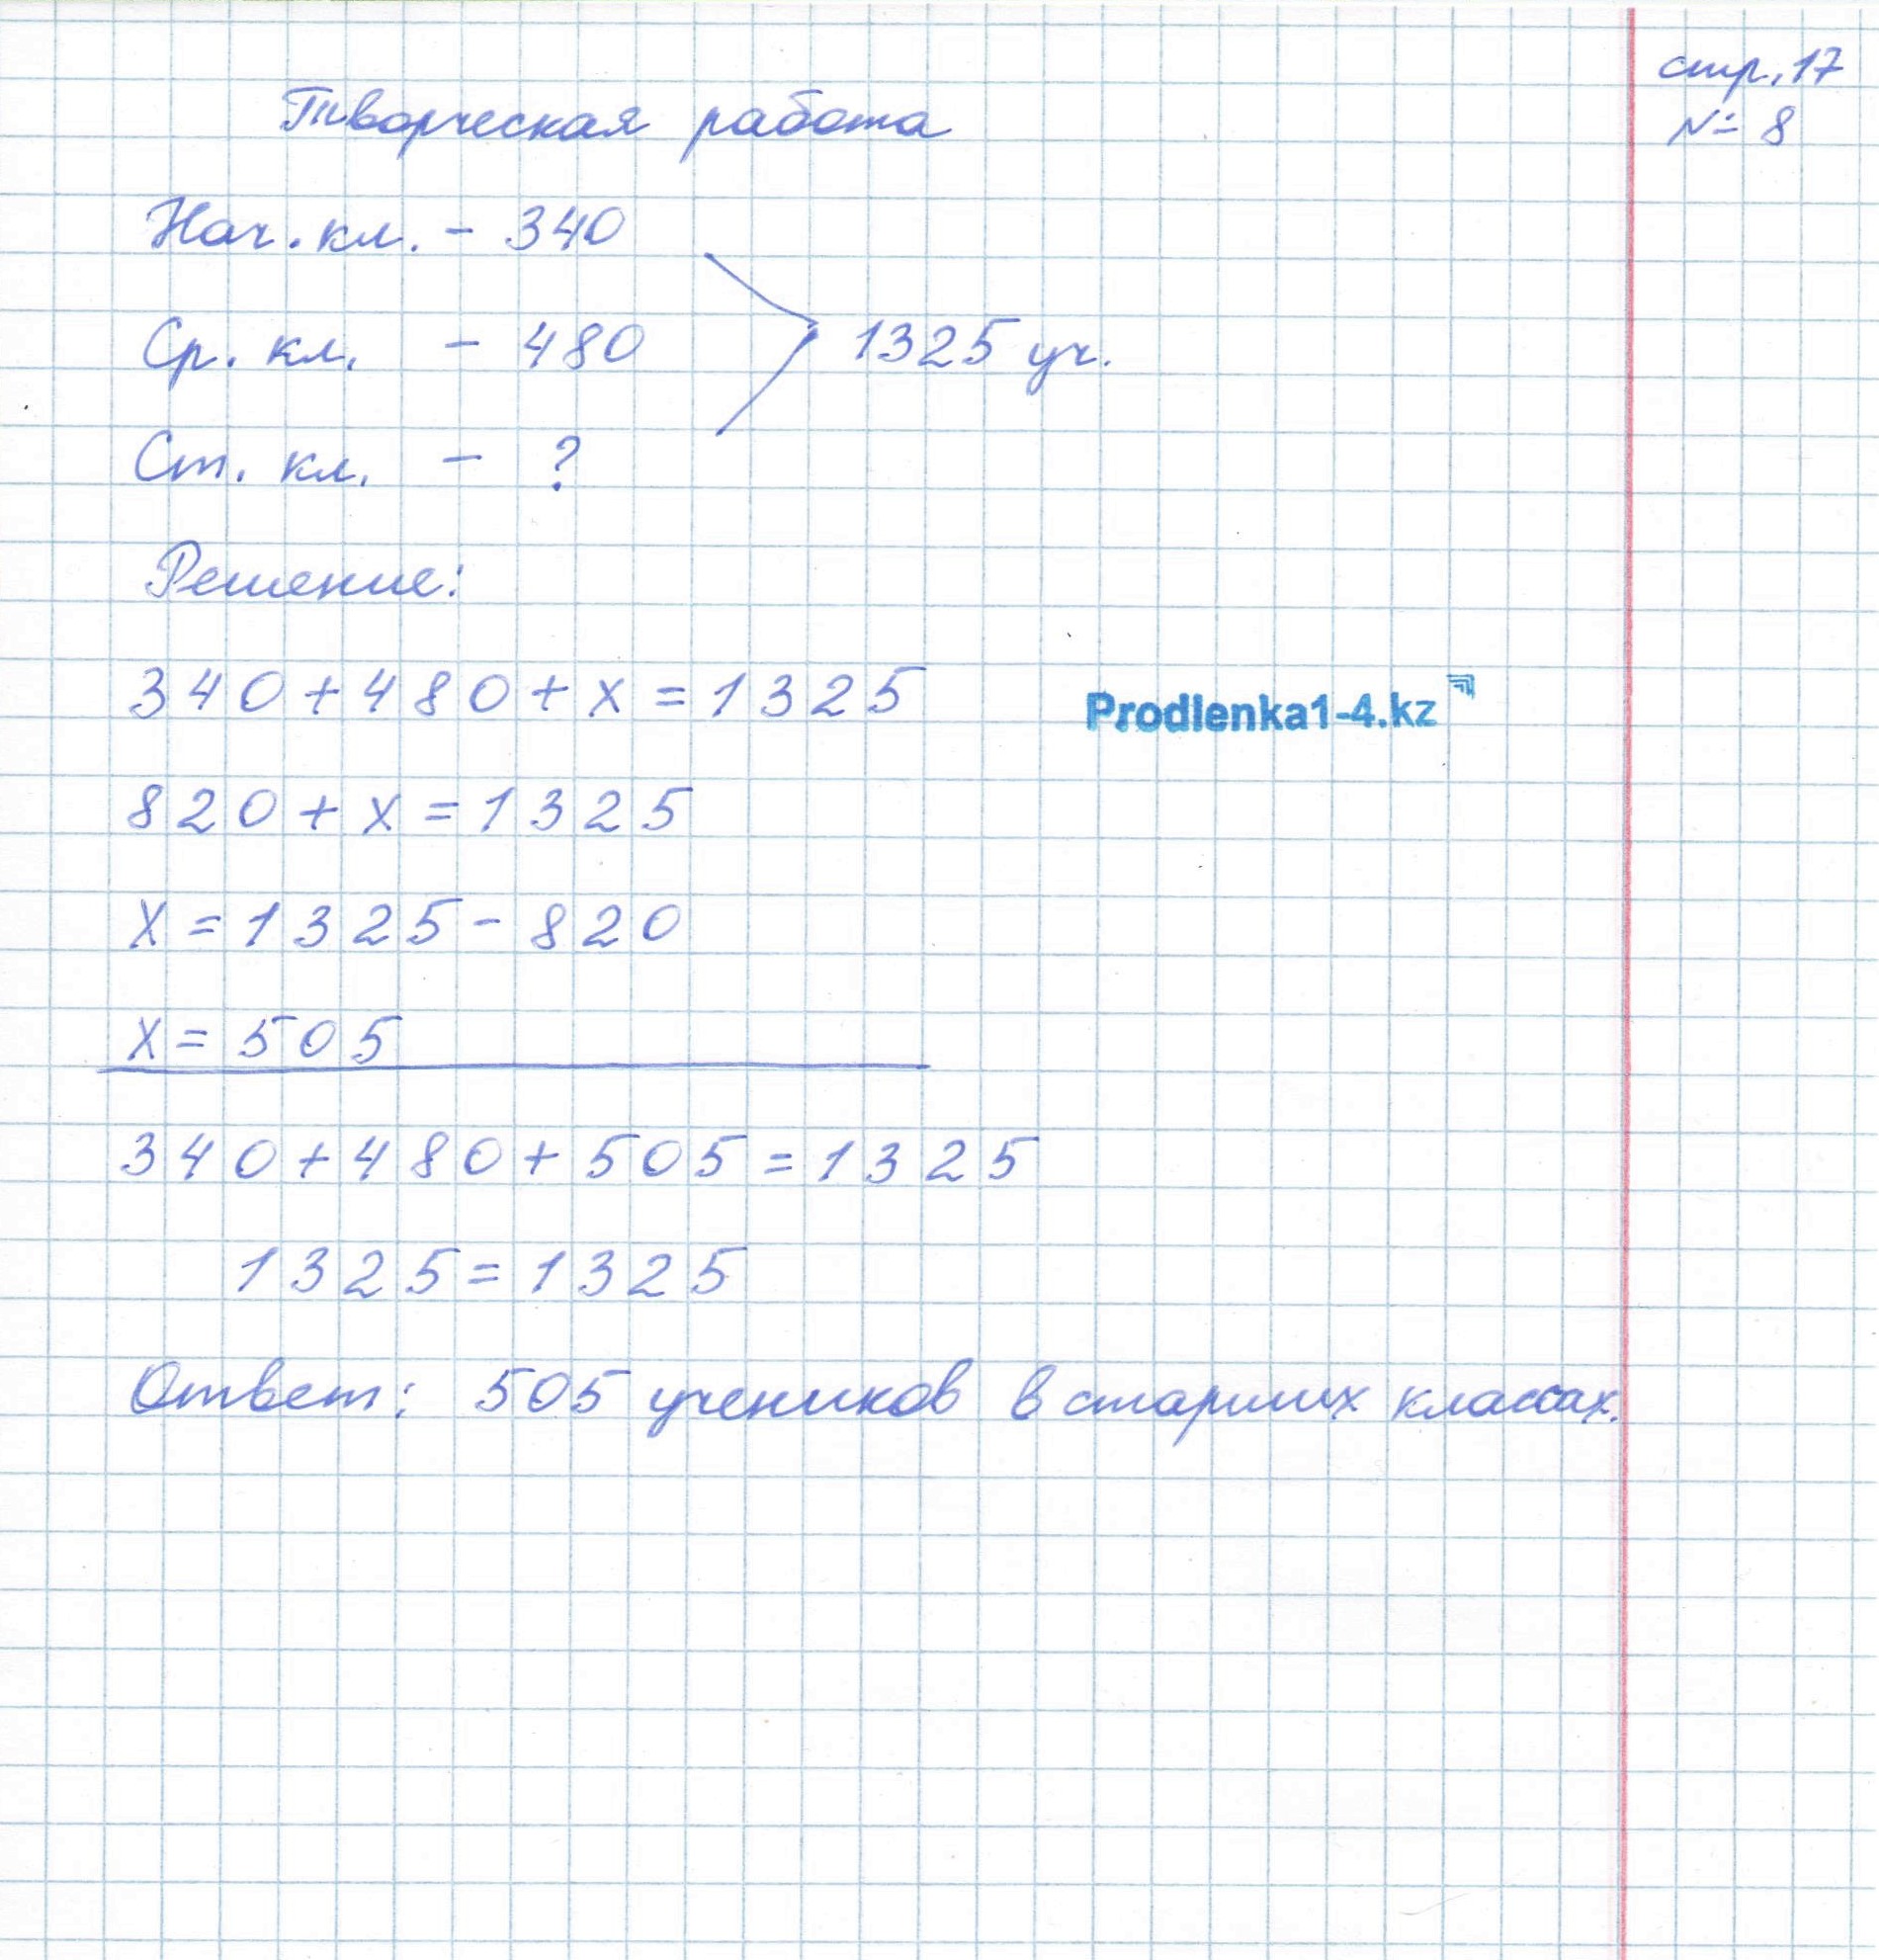 стр. 17
№ 8
Творческая работа
Нач. кл. - 340
Ср. кл. - 480
1325 уч.
Ст. кл. - ?
Решение:
340+480+х=1325
Prodlenka1-4.kz
820+х=1325
х=1325-820
х=505
340+480+505=1325
1325=1325
Ответ: 505 учеников в старших классах.